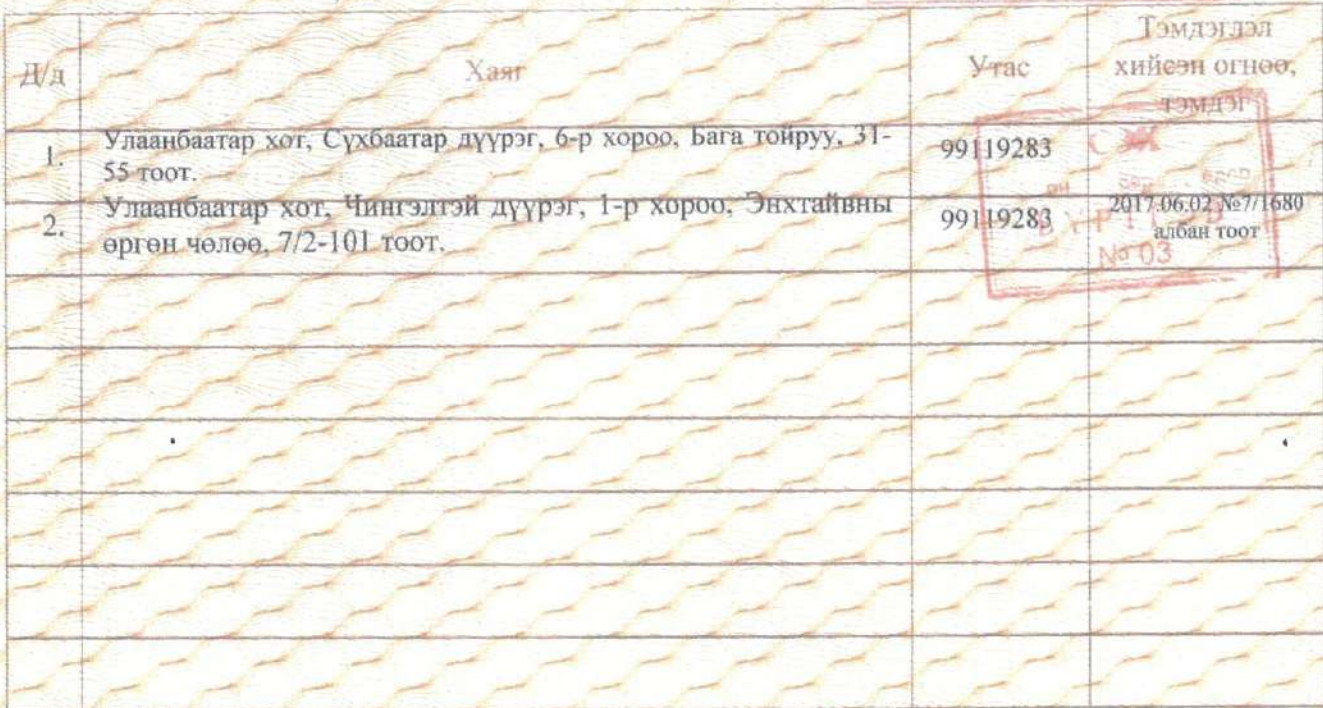 Д/д
Хаяг
Утас
Тэмдэглэл
хийсэн огноо,
тэмдэг
1.
Улаанбаатар хот, Сүхбаатар дүүрэг, 6-р хороо, Бага тойруу, 31-
55 тоот.
99119283
2.
Улаанбаатар хот, Чингэлтэй дүүрэг, 1-р хороо, Энхтайвны
өргөн чөлөө, 7/2-101 тоот.
99119283
2017.06.02 №7/1680
албан тоот
№ 03